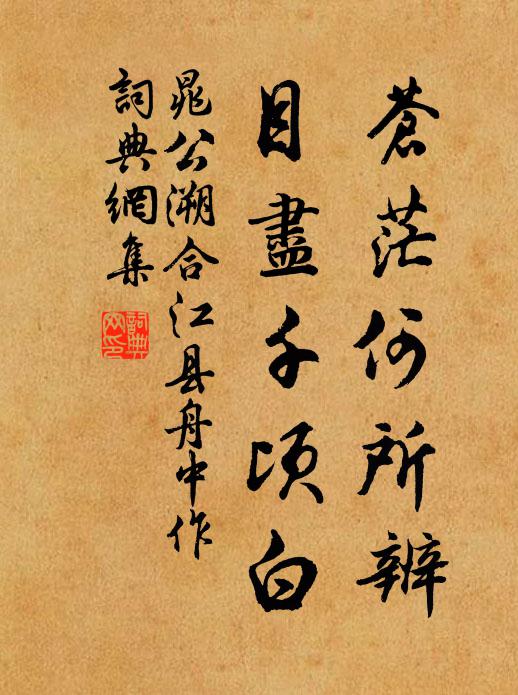 蒼茫何所辨
目盡千頃白
晁公溯合江县舟中作
詞典網集
詞典网印